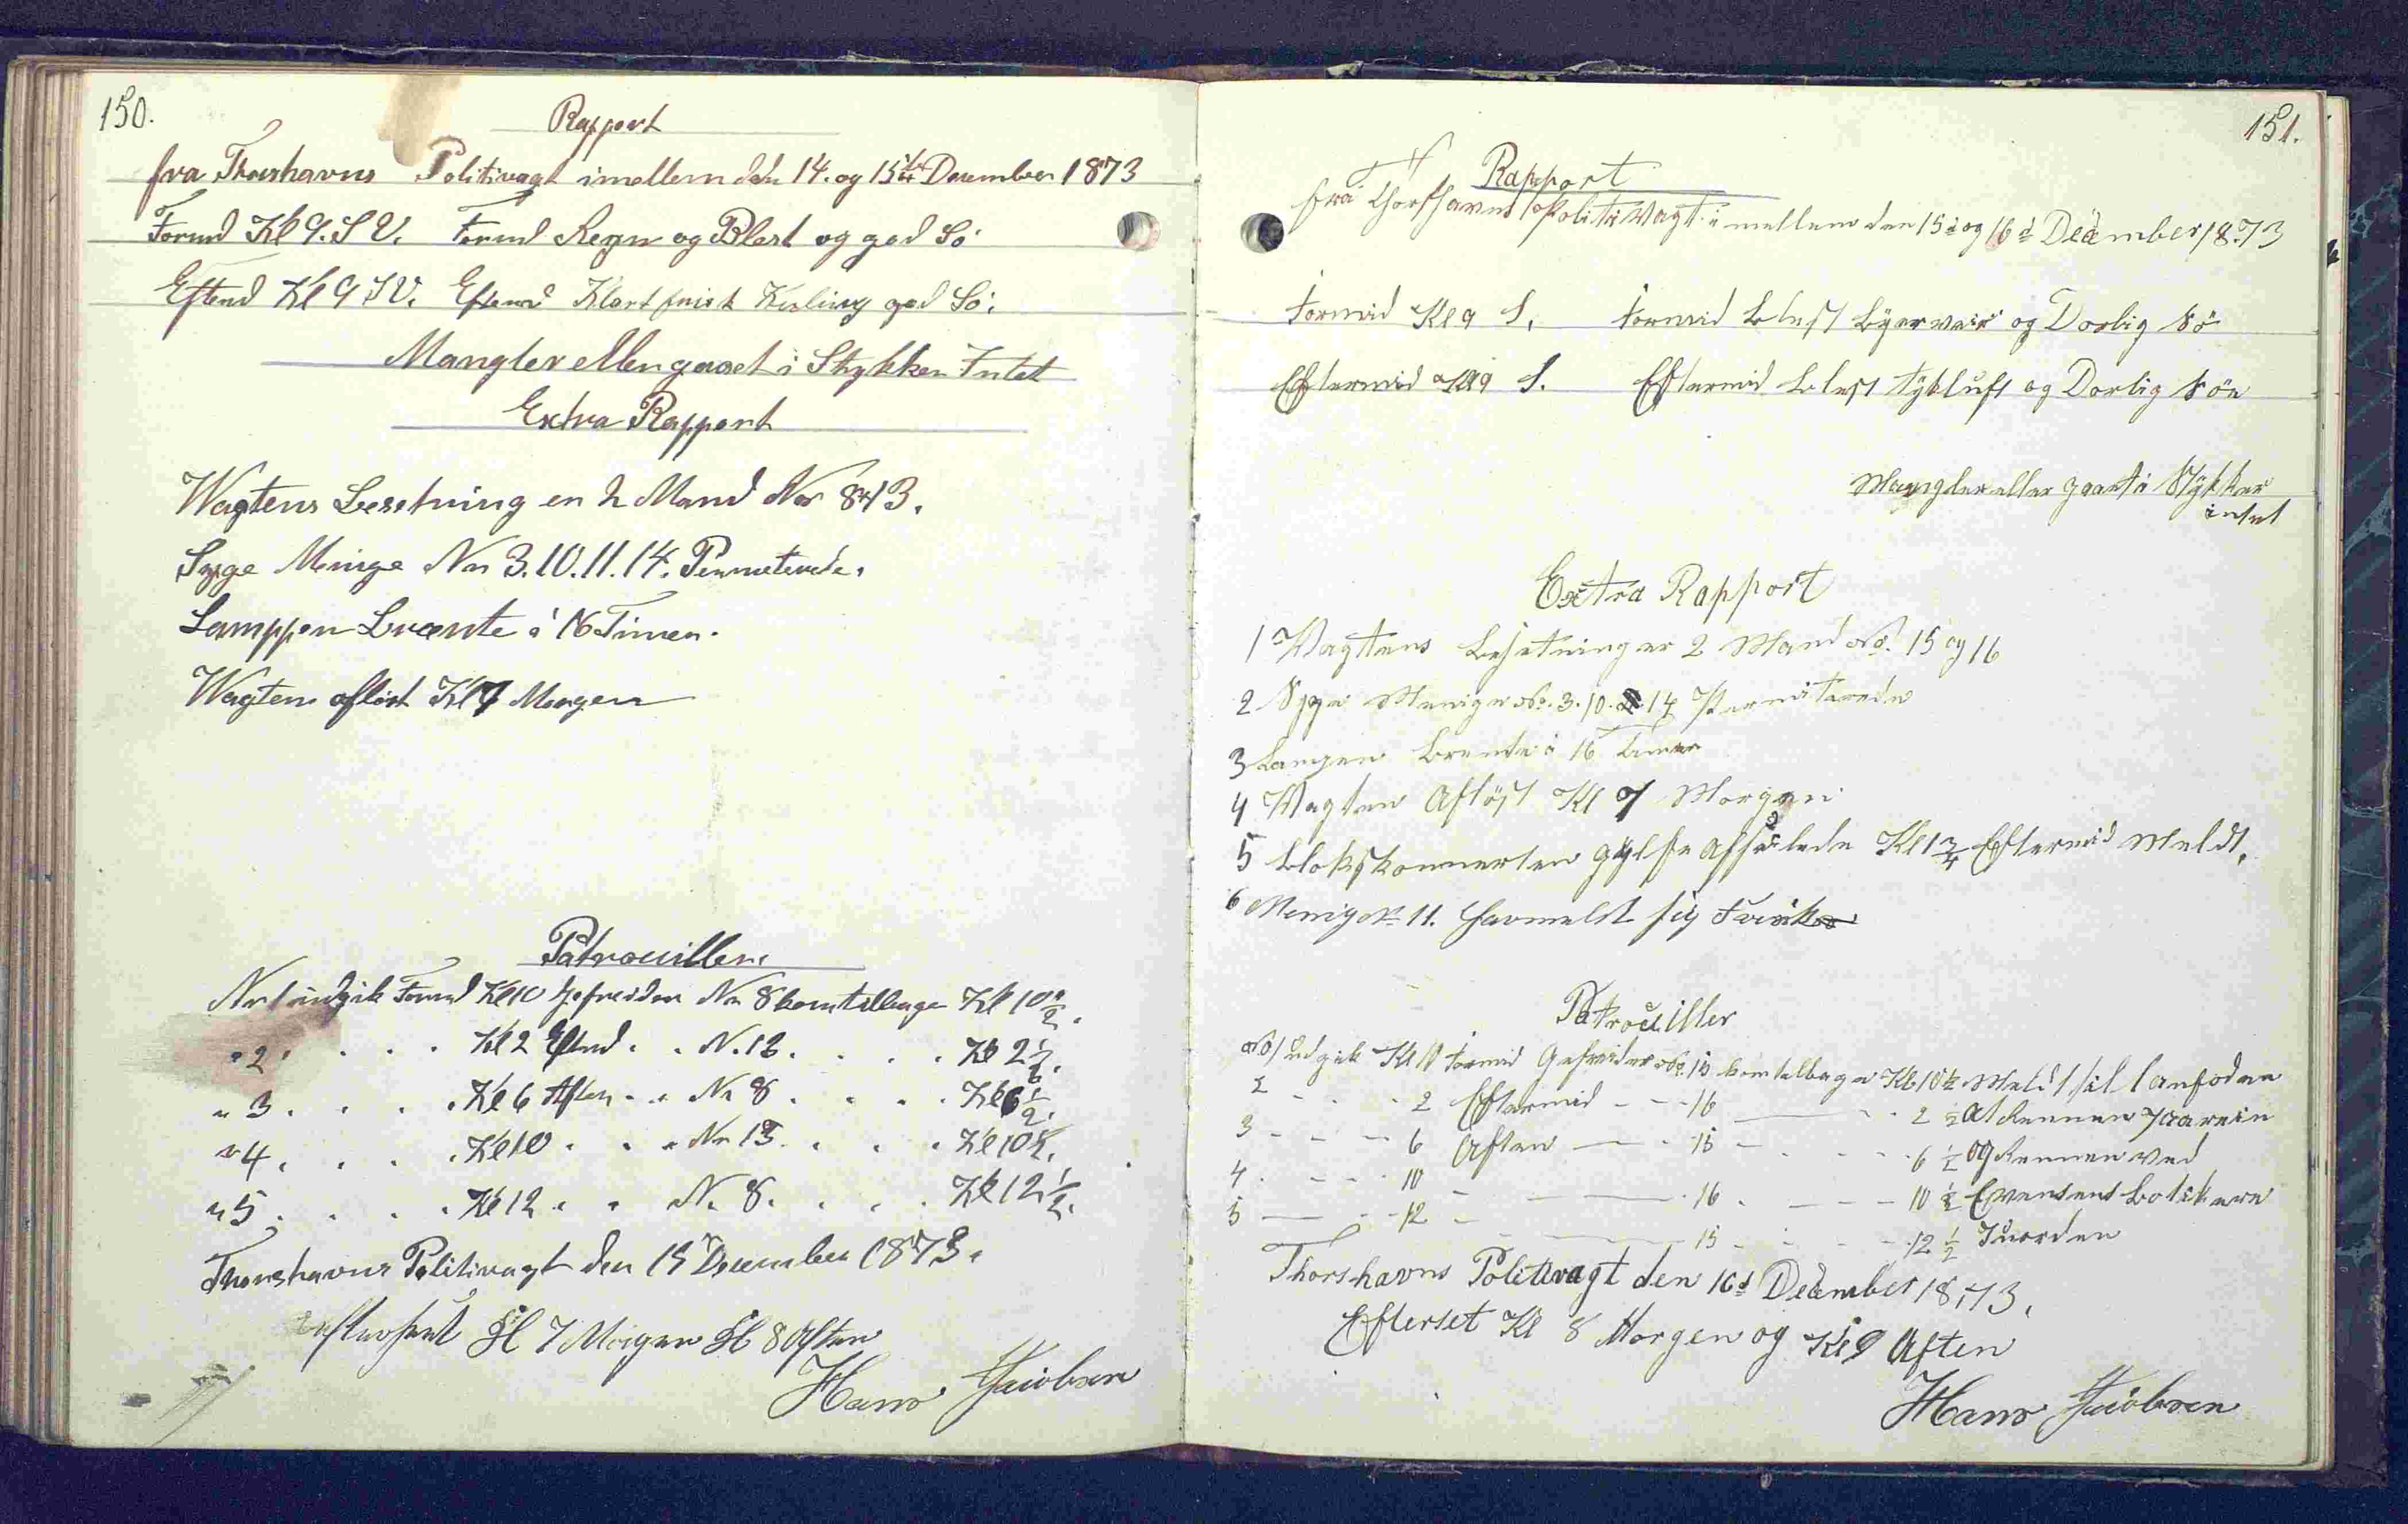 150.
Rapport
fra Thorshavns Politivagt imellem den 14. og 15de December 1873
Formd Kl 9. S V. Formd Regn og Blest og god Sö
Eftmd Kl 9 S V. Eftmd Klart frisk Kuling god Sö.
Mangler eller gaaet i Stykker Intet
Extra Rapport
Wagtens Besetning er 2 Mand No 8 & 13.
Syge Menige No 3. 10. 11. 14. Permeterede.
Lamppen Brænte i 16 Timer.
Wagten aflöst Kl 7 Morgen
Patrouiller.
No 1 udgik Formd Kl 10 Gefreider No 8 kom tilbage Kl 10 1/2.
" 2. . . . Kl 2 Eftmd. . No. 13. . . . Kl 2 1/2.
" 3. . . . Kl 6 Aften . . No 8 . . . . Kl 6 1/2.
" 4. . . . Kl 10 . . . No 13. . . . Kl 10 1/2.
" 5. . . . Kl 12 . . No. 8. . . . Kl 12 1/2.
Thorshavns Politivagt den 15 December 1873.
efterseet Kl 7 Morgen Kl 8 Aften
Hans Jacobsen
151.
Rapport
fra Thorshavns Politi Vagt i mellem den 15d og 16d December 1873
Formid Kl 9 S. Formid Blest Byerveir og Dorlig Sö
Eftermid Kl 9 S. Eftermid Blest tykluft og Dorlig Söe
Mangler eller gaaet i Stykker
intet
Extra Rapport
1 Vagtens Besetning er 2 Mand No. 15 og 16
2 Syge Menige No. 3. 10. 14 Permiterede
3 Lampen Brente i 16 Timer
4 Vagten Aflöst Kl 7 Morgen
5 Blokskonnerten Gylfe Afseilede Kl 1 3/4 Eftermid Meldt.
6 Menig No 11. Har meldt sig Frisk
Patrouiller
No 1 udgik Kl 10 formid Gefreider No 15 kom tilbage Kl 10 1/2 Meldt til Lanfoden
2 - - - 2 Eftermid - - 16 - - 2 1/2 At Rennen
3 - - - 6 Aften - - 15 - - - 6 1/2 og Rennen ved
4 - - - 10 - - 16 . - - 10 1/2 Evensens Botik ere
5 - - 12 - - 15 - - - 12 1/2 I uorden
Thorshavns Politivagt den 16d December 1873.
Efterset Kl 8 Morgen og Kl 9 Aften
Hans Jacobsen